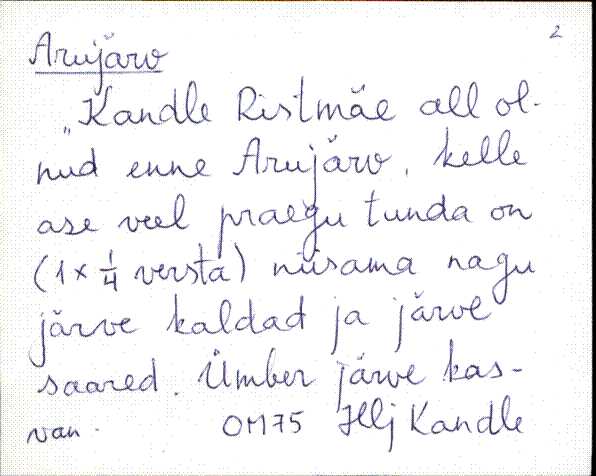 2
Arujärv
„Kandle Ristmäe all ol-
nud enne Arujärv, kelle
ase veel praegu tunda on
(1 x 1/4 versta) niisama nagu
järve kaldad ja järve
saared. Ümber järve kas-
van- OM75 Hlj Kandle